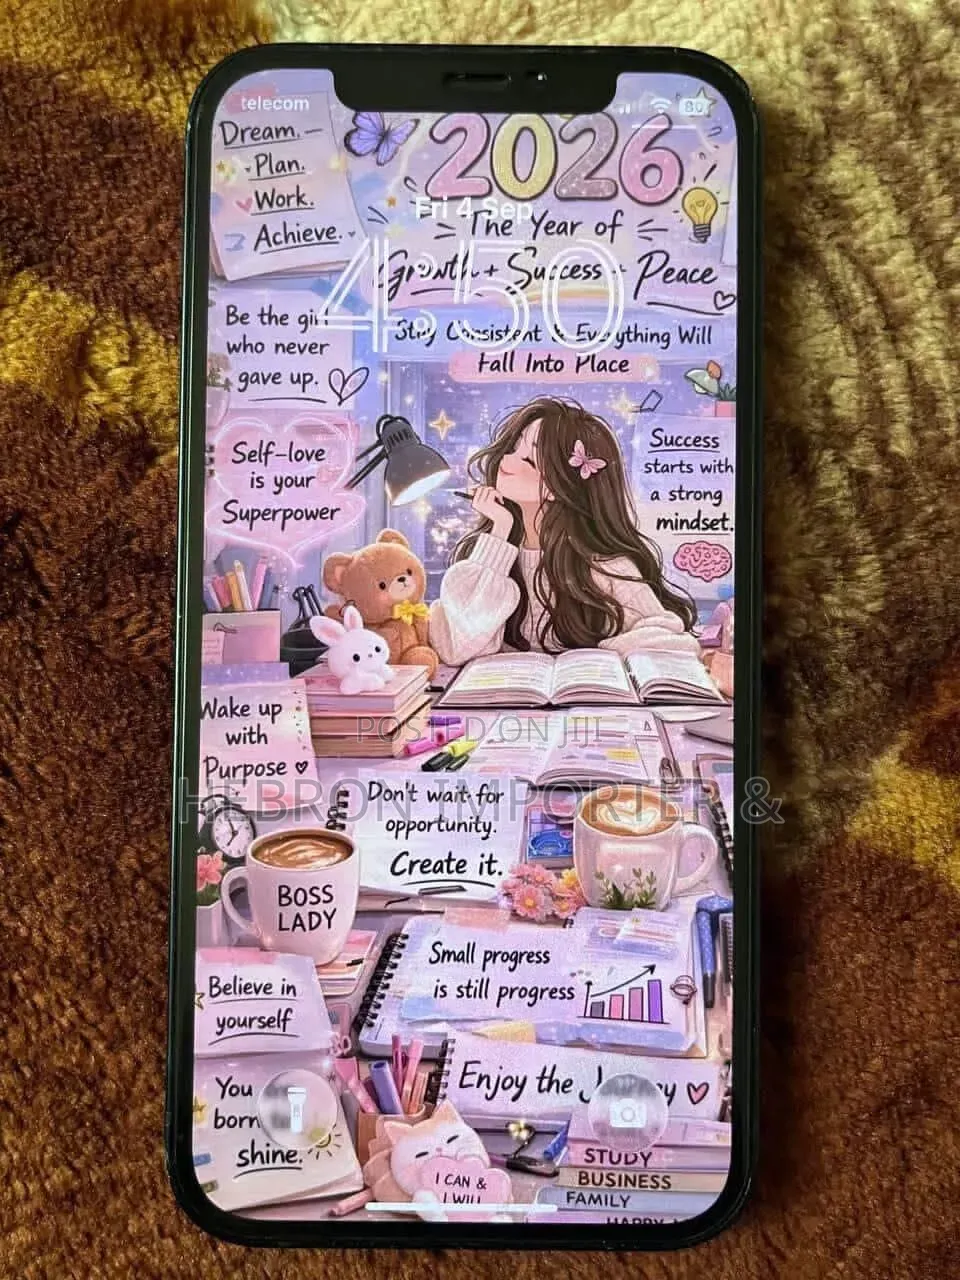 telecom
80
Dream.
Plan.
Work.
Achieve.
2026
Fri 4 Sep
The Year of
Growth + Success + Peace
4:50
Stay Consistent & Everything Will
Fall Into Place
Be the girl
who never
gave up.
Self-love
is your
Superpower
Success
starts with
a strong
mindset.
Wake up
with
Purpose
POSTED ON JIJI
HEBRON IMPORTER &
Don't wait for
opportunity.
Create it.
BOSS
LADY
Small progress
is still progress
Believe in
yourself
Enjoy the
You
born
shine.
I CAN &
I WILL
STUDY
BUSINESS
FAMILY